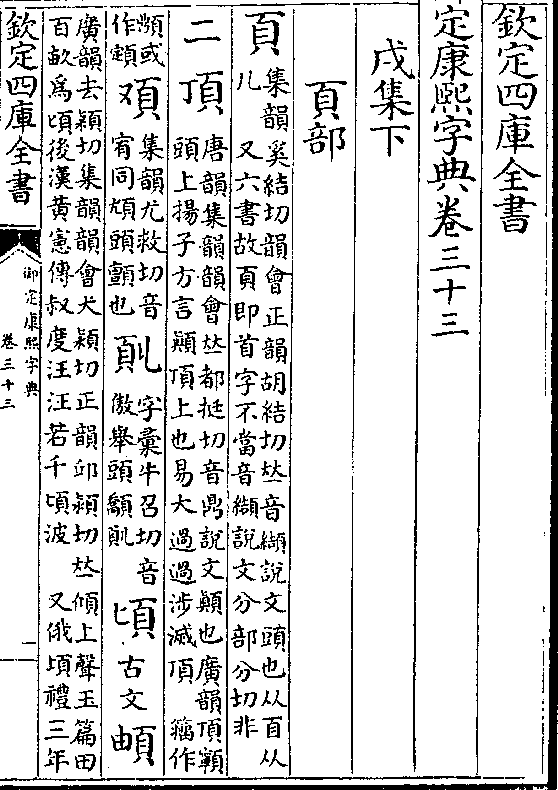 欽定四庫全書
定康熙字典卷三十三
戌集下
頁部
頁 集韻奚結切韻會正韻胡結切𠀤音纈說文頭也从𦣻从
儿 又六書故頁即首字不當音纈說文分部分切非
二 頂 唐韻集韻韻會𠀤都挺切音鼎說文顚也廣韻頂𩕳
頭上揚子方言顚頂上也易大過過涉滅頂 籀作
𩕢或
作𩠑 頄 集韻尤救切音
宥同頏頭顫也 𩑋 字彙牛召切音
傲舉頭𩕾𩑋 頃 古文 𩒎
廣韻去穎切集韻韻會犬穎切正韻丘穎切𠀤傾上聲玉篇田
百畝爲頃後漢黃憲傳叔度汪汪若千頃波 又俄頃禮三年
欽定四庫全書
御定康熙字典
卷三十三
一